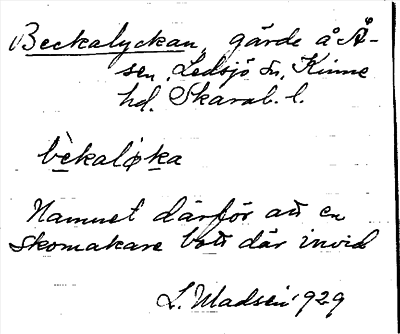 Beckalyckan, gärde å Å-
sen, Ledsjö sn, Kinne
hd. Skarab. l.
bèkaløka
Namnet därför att en
skomakare bott där invid
L. Madsén 1929